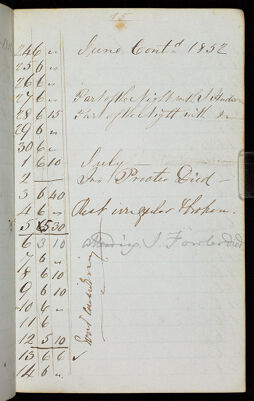 95
June Contd 1852
24 6 "
25 6 "
26 6 "
27 6 " Part of the Night with J
28 6 15 Part of the Night with Do
29 6 "
30 6 "
1 6 10 July —
2 — Jno Procter Died —
3 6 40
4 6 " Rest irregular & broken.
5 5 30
6 3 10 J. died
7 6 "
8 6 10
9 6 10
10 6 "
11 6
12 5 10
13 6 6
14 6 "